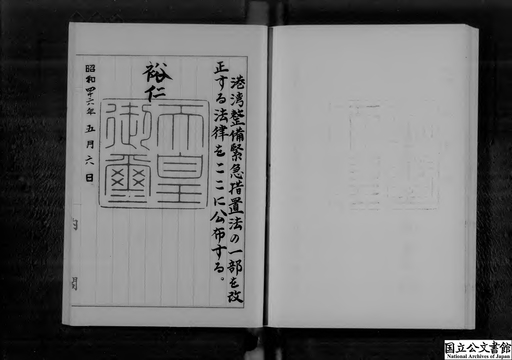 港湾整備緊急措置法の一部を改
正する法律をここに公布する。
裕仁
天皇
御璽
昭和四六年五月六日
国立公文書館
National Archives of Japan